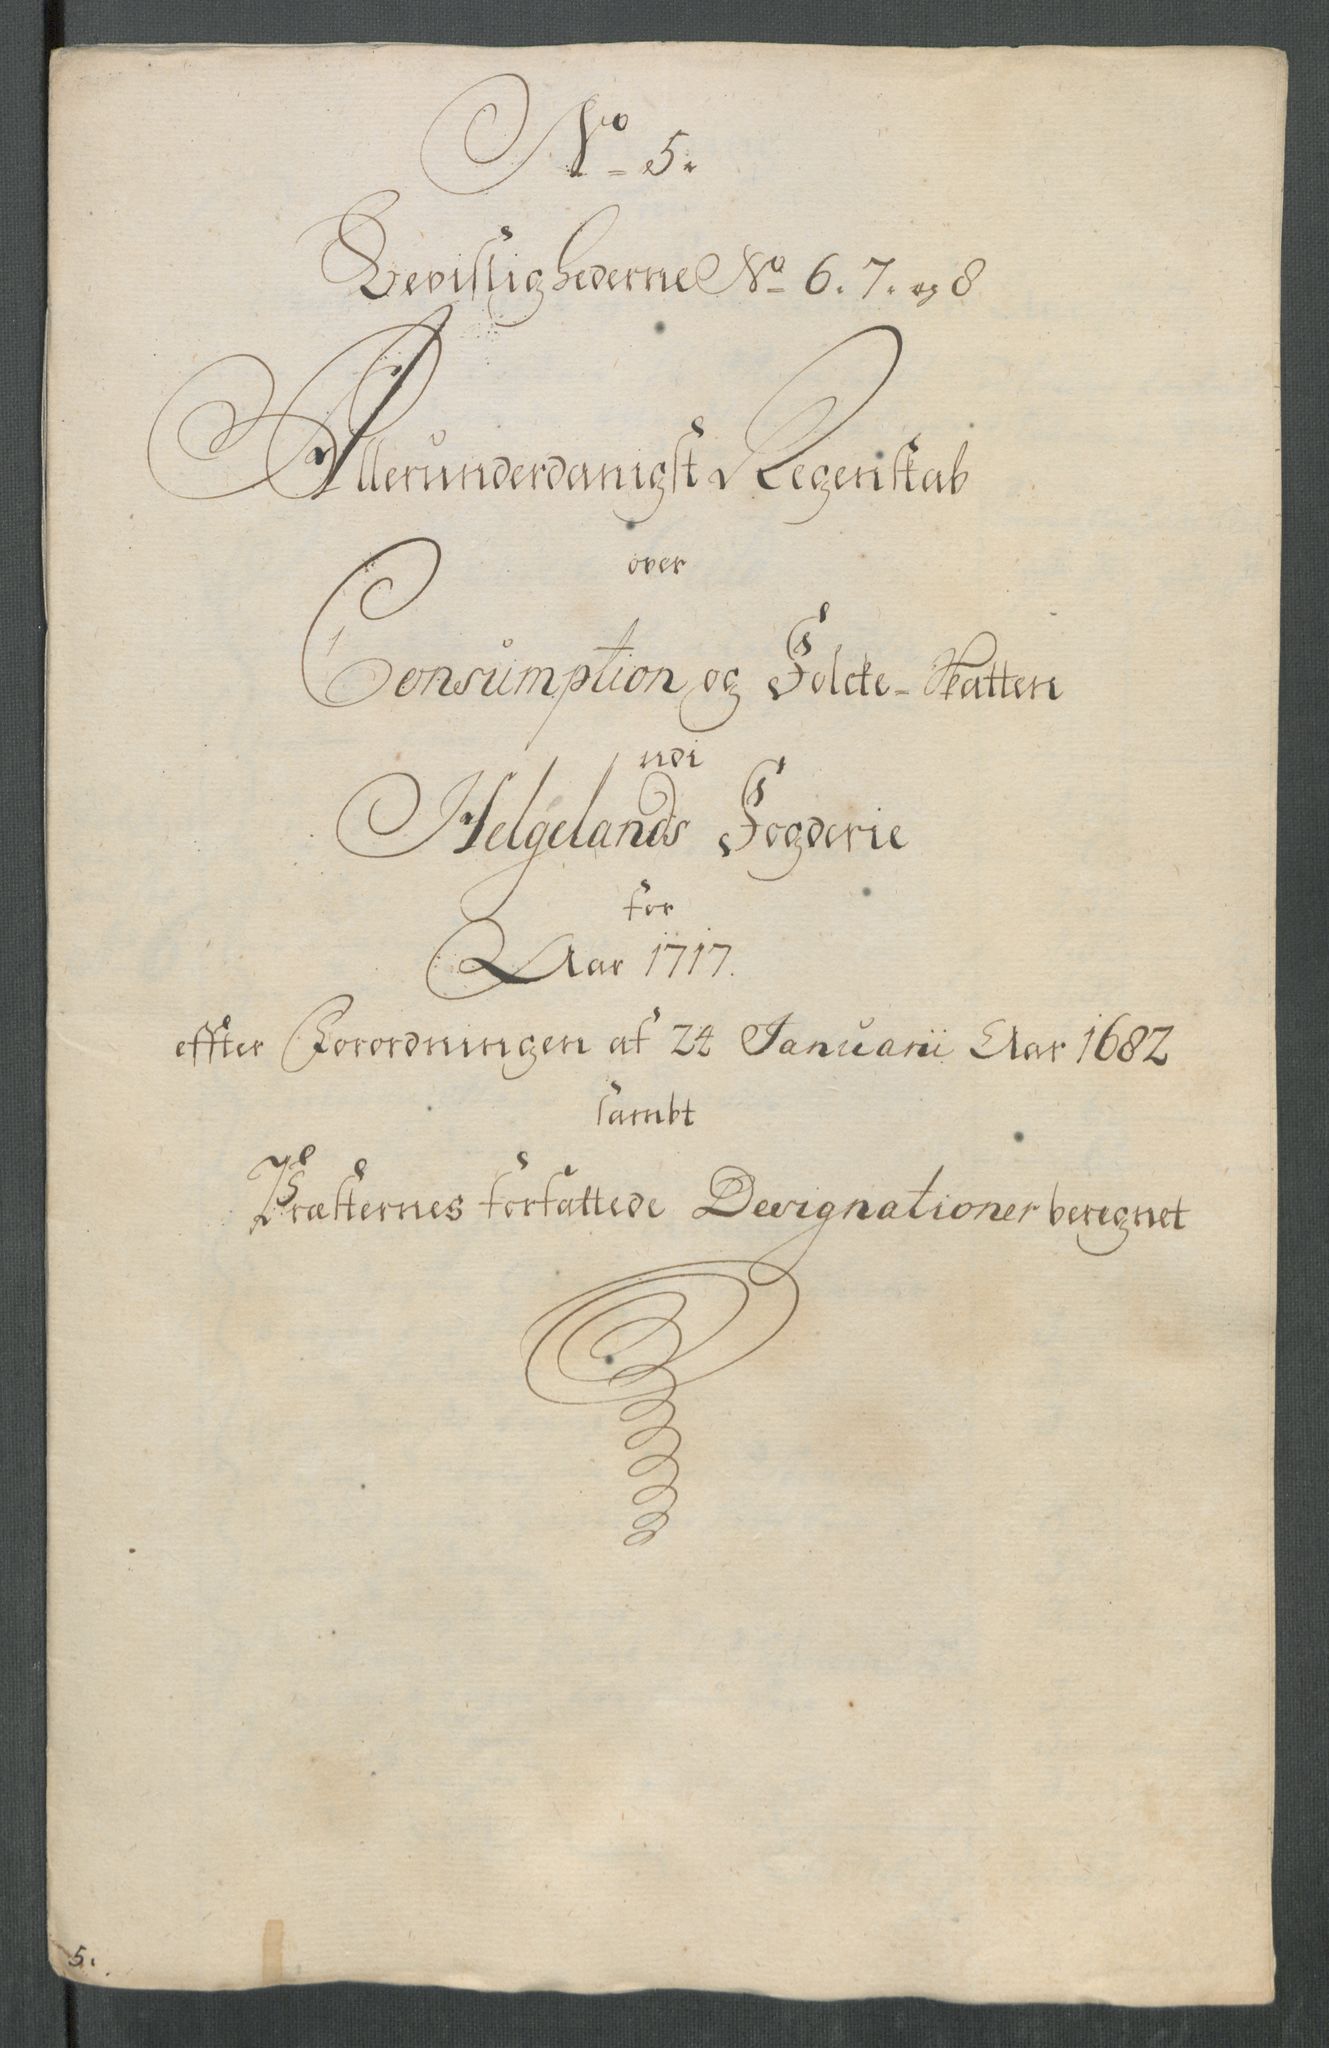 No 5.
Bevislighederne No 6. 7. og 8
Allerunderdanigst Regenskab
over
Consumption og Folcke-Skatten
udi
Helgelands Fogderie
for
Aar 1717.
effter Forordningen af 24 Januarii Aar 1682
sambt
Præsternes forfattede Designationer beregnet
5.